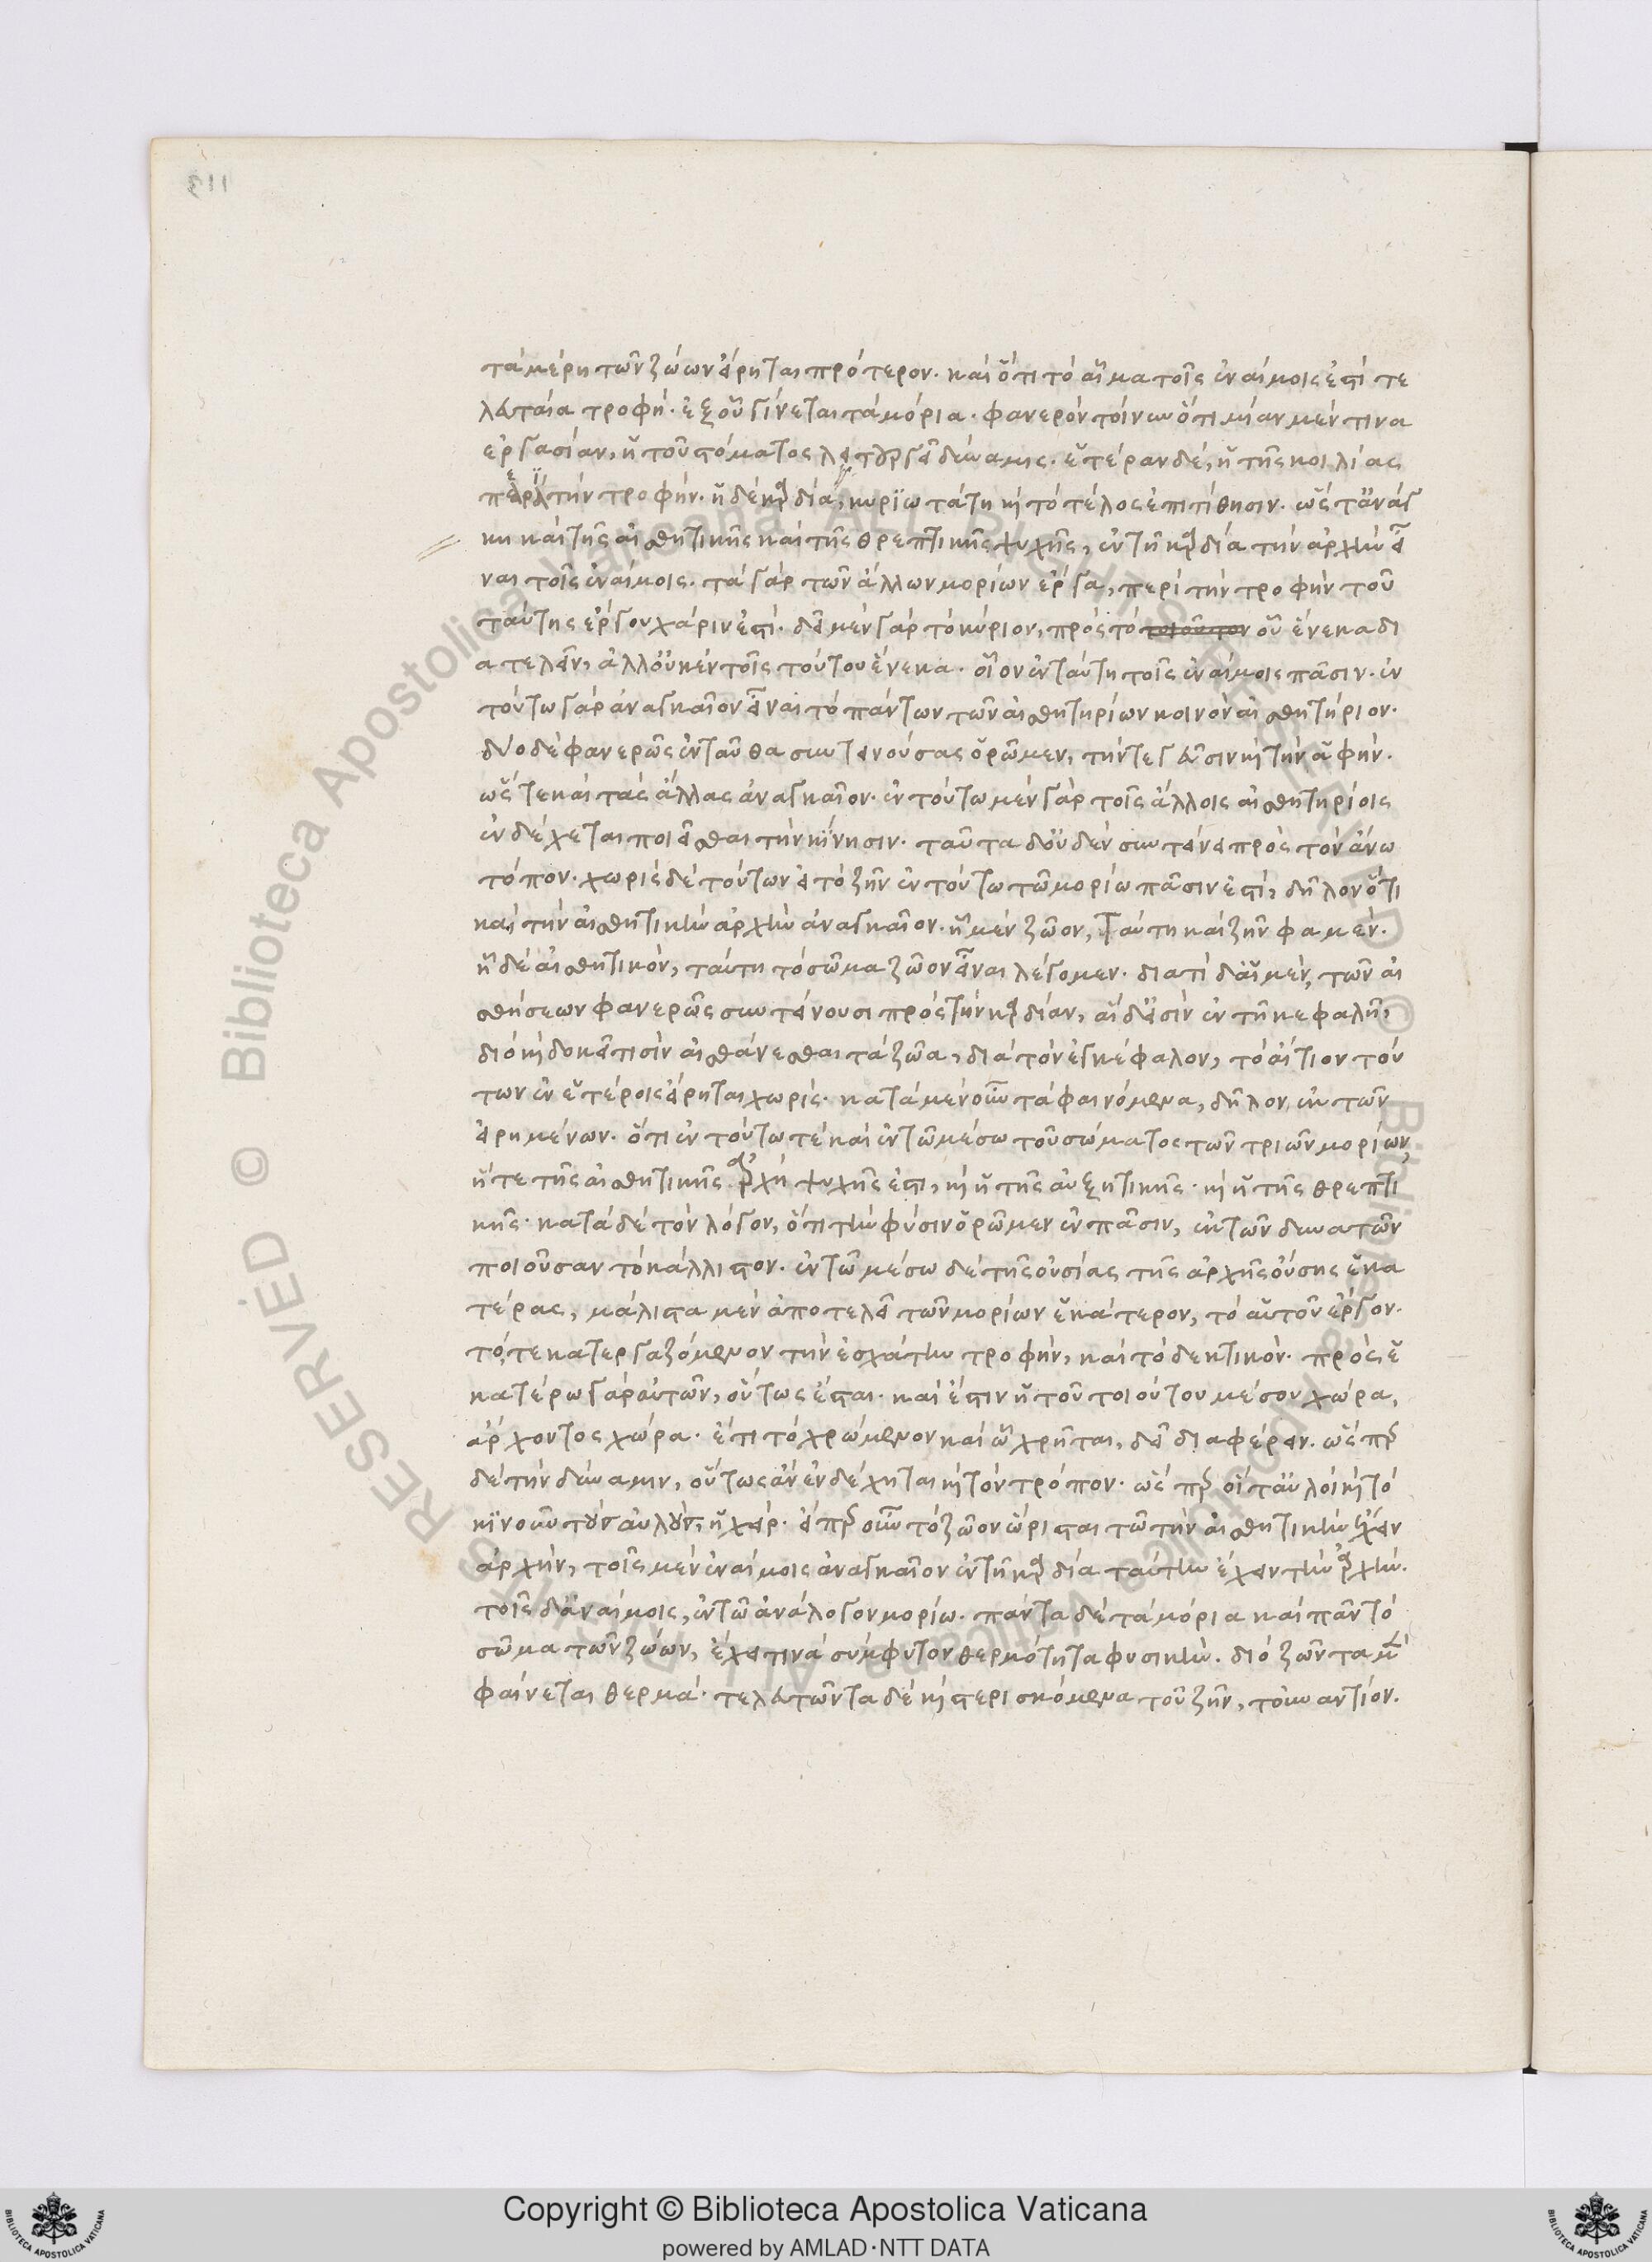 τὰ μέρη τῶν ζώων εἴρηται πρότερον. καὶ ὅτι τὸ αἷμα τοῖς ἐναίμοις ἐστὶ τε
λευταία τροφή. ἐξ οὗ γίνεται τὰ μόρια. φανερὸν τοίνυν ὅτι μίαν μέν τινα
ἐργασίαν, ἡ τοῦ στόματος λειτουργεῖ δύναμις. ἑτέραν δὲ, ἡ τῆς κοιλίας
τὴν τροφήν. ἡ δὲ καρδία, κυριωτάτη καὶ τὸ τέλος ἐπιτίθησιν. ὥστ' ἀνάγ
κη καὶ τῆς αἰσθητικῆς καὶ τῆς θρεπτικῆς ψυχῆς, ἐν τῇ καρδία τὴν ἀρχὴν εἶ
ναι τοῖς ἐναίμοις. τὰ γὰρ τῶν ἄλλων μορίων ἔργα, περὶ τὴν τροφὴν τοῦ
ταύτης ἔργου χάριν ἐστί. δεῖ μὲν γὰρ τὸ κύριον, πρὸς τὸ τοιοῦτον οὗ ἕνεκα δι
ατελεῖν, ἀλλ' οὐκ ἐν τοῖς τούτου ἕνεκα. οἷον ἐνταύτη τοῖς ἐναίμοις πᾶσιν. ἐν
τούτω γὰρ ἀναγκαῖον εἶναι τὸ πάντων τῶν αἰσθητηρίων κοινὸν αἰσθητήριον.
δύο δὲ φανερῶς ἐνταῦθα συντεινούσας ὁρῶμεν, τήν τε γεῦσιν καὶ τὴν ἁφήν.
ὥστε καὶ τὰς ἄλλας ἀναγκαῖον. ἐν τούτω μὲν γὰρ τοῖς ἄλλοις αἰσθητηρίοις
ἐνδέχεται ποιεῖσθαι τὴν κίνησιν. ταῦτα δ' οὐδὲν συντείνει πρὸς τὸν ἄνω
τόπον. χωρὶς δὲ τούτων εἰ τὸ ζῆν ἐν τούτω τῶ μορίω πᾶσιν ἐστί, δῆλον ὅτι
καὶ τὴν αἰσθητικὴν ἀρχὴν ἀναγκαῖον. ἧ μὲν ζῶον, ταύτη καὶ ζῆν φαμέν.
ἧ δὲ αἰσθητικόν, ταύτη τὸ σῶμα ζῶον εἶναι λέγομεν. διατί δ' αἱ μὲν, τῶν αἰ
σθήσεων φανερῶς συντείνουσι πρὸς τὴν καρδίαν, αἱ δ' εἰσὶν ἐν τῇ κεφαλῇ,
διὸ καὶ δοκεῖ τισὶν αἰσθάνεσθαι τὰ ζῶα, διὰ τὸν ἐγκέφαλον, τὸ αἴτιον τού
των ἐν ἑτέροις εἴρηται χωρίς. κατὰ μὲν οὖν τὰ φαινόμενα, δῆλον ἐκ τῶν
εἰρημένων. ὅτι ἐν τούτω τὲ καὶ ἐν τῶ μέσω τοῦ σώματος τῶν τριῶν μορίων,
ἥ τε τῆς αἰσθητικῆς ἀρχὴ ψυχῆς ἐστι, καὶ ἡ τῆς αὐξητικῆς. καὶ ἡ τῆς θρεπτι
κῆς. κατὰ δὲ τὸν λόγον, ὅτι τὴν φύσιν ὁρῶμεν ἐν πᾶσιν, ἐκ τῶν δυνατῶν
ποιοῦσαν τὸ κάλλιστον. ἐν τῶ μέσω δὲ τῆς οὐσίας τῆς ἀρχῆς οὔσης ἑκα
τέρας, μάλιστα μὲν ἀποτελεῖ τῶν μορίων ἑκάτερον, τὸ αὑτοῦ ἔργον.
τό, τε κατεργαζόμενον τὴν ἐσχάτην τροφήν, καὶ τὸ δεκτικόν. πρὸς ἑ
κατέρω γὰρ αὐτῶν, οὕτως ἔσται. καὶ ἔστιν ἡ τοῦ τοιούτου μέσου χώρα,
ἄρχοντος χώρα. ἔτι τὸ χρώμενον καὶ ὧ χρῆται, δεῖ διαφέρειν. ὥσπερ
δὲ τὴν δύναμιν, οὕτως ἂν ἐνδέχηται καὶ τὸν τρόπον. ὥσπερ οἵ τ' αὐλοὶ καὶ τὸ
κινοῦν τοὺς αὐλούς, ἡ χείρ. εἴπερ οὖν τὸ ζῶον ὥρισται τῶ τὴν αἰσθητικὴν ἔχειν
ἀρχήν, τοῖς μὲν ἐναίμοις ἀναγκαῖον ἐν τῇ καρδία ταύτην ἔχειν τὴν ἀρχήν.
τοῖς δ' ἀναίμοις, ἐν τῶ ἀνάλογον μορίω. πάντα δὲ τὰ μόρια καὶ πᾶν τὸ
σῶμα τῶν ζώων, ἔχει τινὰ σύμφυτον θερμότητα φυσικήν. διὸ ζῶντα μὲν
φαίνεται θερμά. τελευτῶντα δὲ καὶ στερισκόμενα τοῦ ζῆν, τοὐναντίον.
Copyright © Biblioteca Apostolica Vaticana
powered by AMLAD·NTT DATA